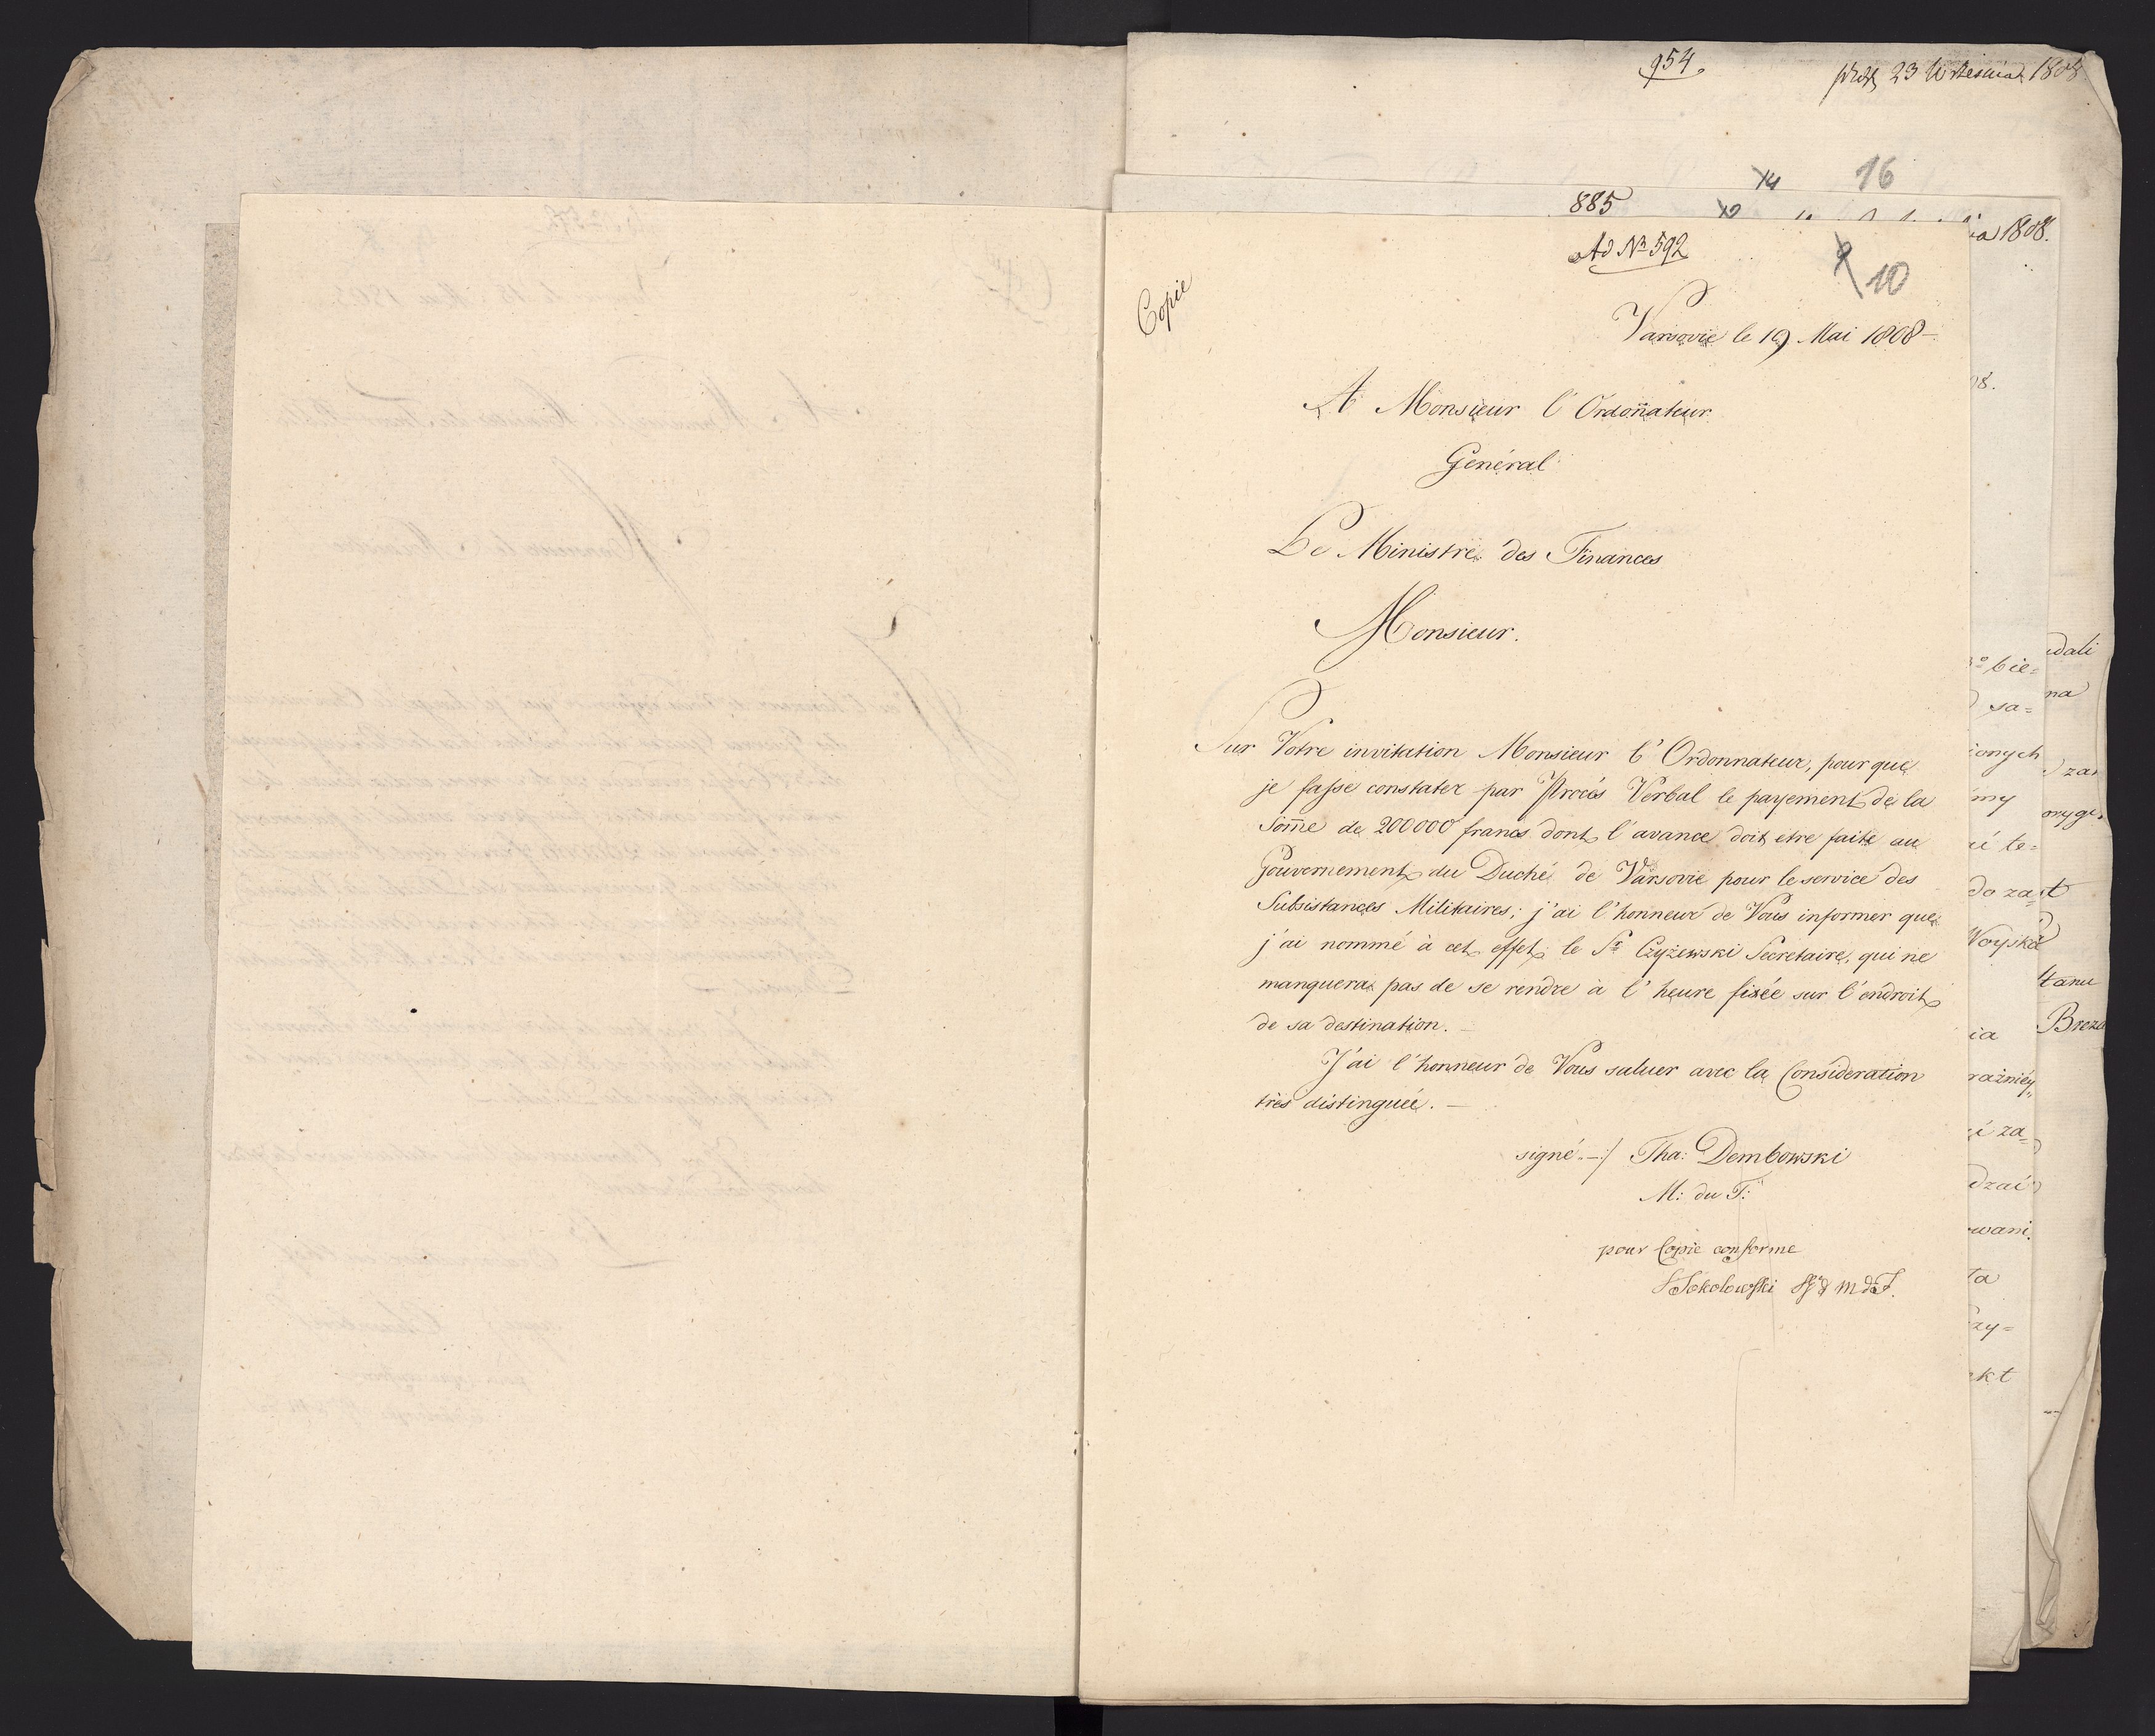 954
23 Września 1808
14 16
885
12
ia 1808.
Ad No 592
9 10
Copie
Varsovie le 19 Mai 1808 –
A Monsieur l'Ordoñateur
Général
Le Ministre des Finances
Monsieur.
Sur Votre invitation Monsieur l'Ordonnateur, pour que
je fasse constater par Procès Verbal le payement de la
Som̃e de 200000 francs dont l'avance doit etre faite au
Gouvernement du Duché de Varsovie pour le service des
Subsistances Militaires; j'ai l'honneur de Vous informer que
j'ai nommé à cet effet le Sr Czyżewski Secretaire, qui ne
manquera pas de se rendre à l'heure fixée sur l'endroit
de sa destination. –
J'ai l'honneur de Vous saluer avec la Consideration
très distinguée. –
signé. –:/ Tha: Dembowski
M: du T:
pour Copie conforme
Sokolowski
08.
bie=
sa=
ionych
my
ii te=
do za=
Woyska
ia
raźniéy
i za=
dzai
wani
ta
zy=
kt
dali
na
zar
t
tanu
Breza